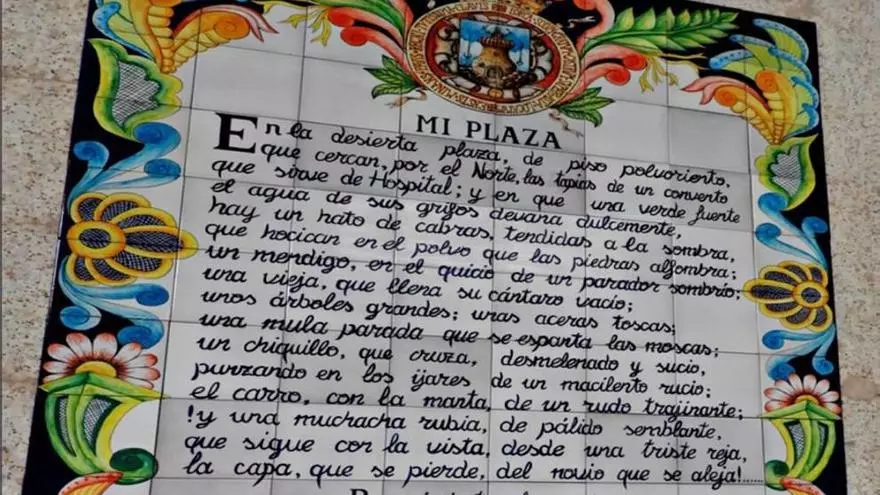 MI PLAZA
En la desierta plaza, de piso polvoriento,
que cercan, por el Norte, las tapias de un convento
que sirve de Hospital; y en que una verde fuente
el agua de sus grifos devana dulcemente,
hay un hato de cabras, tendidas a la sombra,
que hocican en el polvo que las piedras alfombra;
un mendigo, en el quicio de un parador sombrío;
una vieja, que llena su cántaro vacío;
unos árboles grandes; unas aceras toscas;
una mula parada que se espanta las moscas;
un chiquillo, que cruza, desmelenado y sucio,
punzando en los ijares de un macilento rucio;
el carro, con la manta, de un rudo trajinante;
!y una muchacha rubia, de pálido semblante,
que sigue con la vista, desde una triste reja,
la capa, que se pierde, del novio que se aleja!......